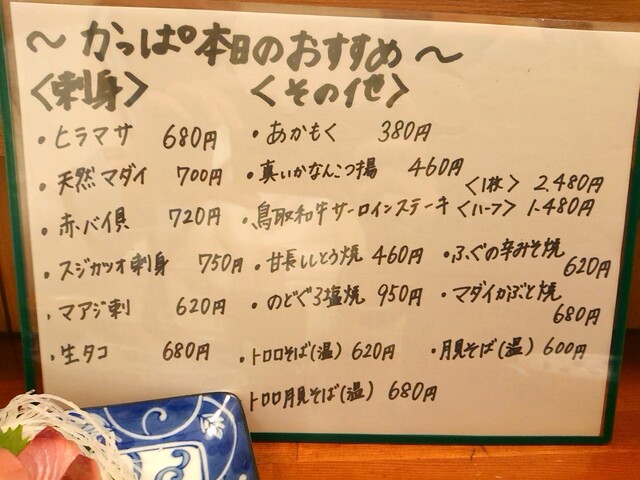 ～かっぱ本日のおすすめ～
〈刺身〉
・ヒラマサ 680円
・天然マダイ 700円
・赤バイ貝 720円
・スジガツオ刺身 750円
・マアジ刺 620円
・生タコ 680円
〈その他〉
・あかもく 380円
・真いかなんこつ揚 460円
・鳥取和牛サーロインステーキ 〈1枚〉 2,480円
〈ハーフ〉 1,480円
・甘長ししとう焼 460円
・ふぐの辛みそ焼 620円
・のどぐろ塩焼 950円
・マダイかぶと焼 680円
・トロロそば(温) 620円
・月見そば(温) 600円
トロロ月見そば(温) 680円